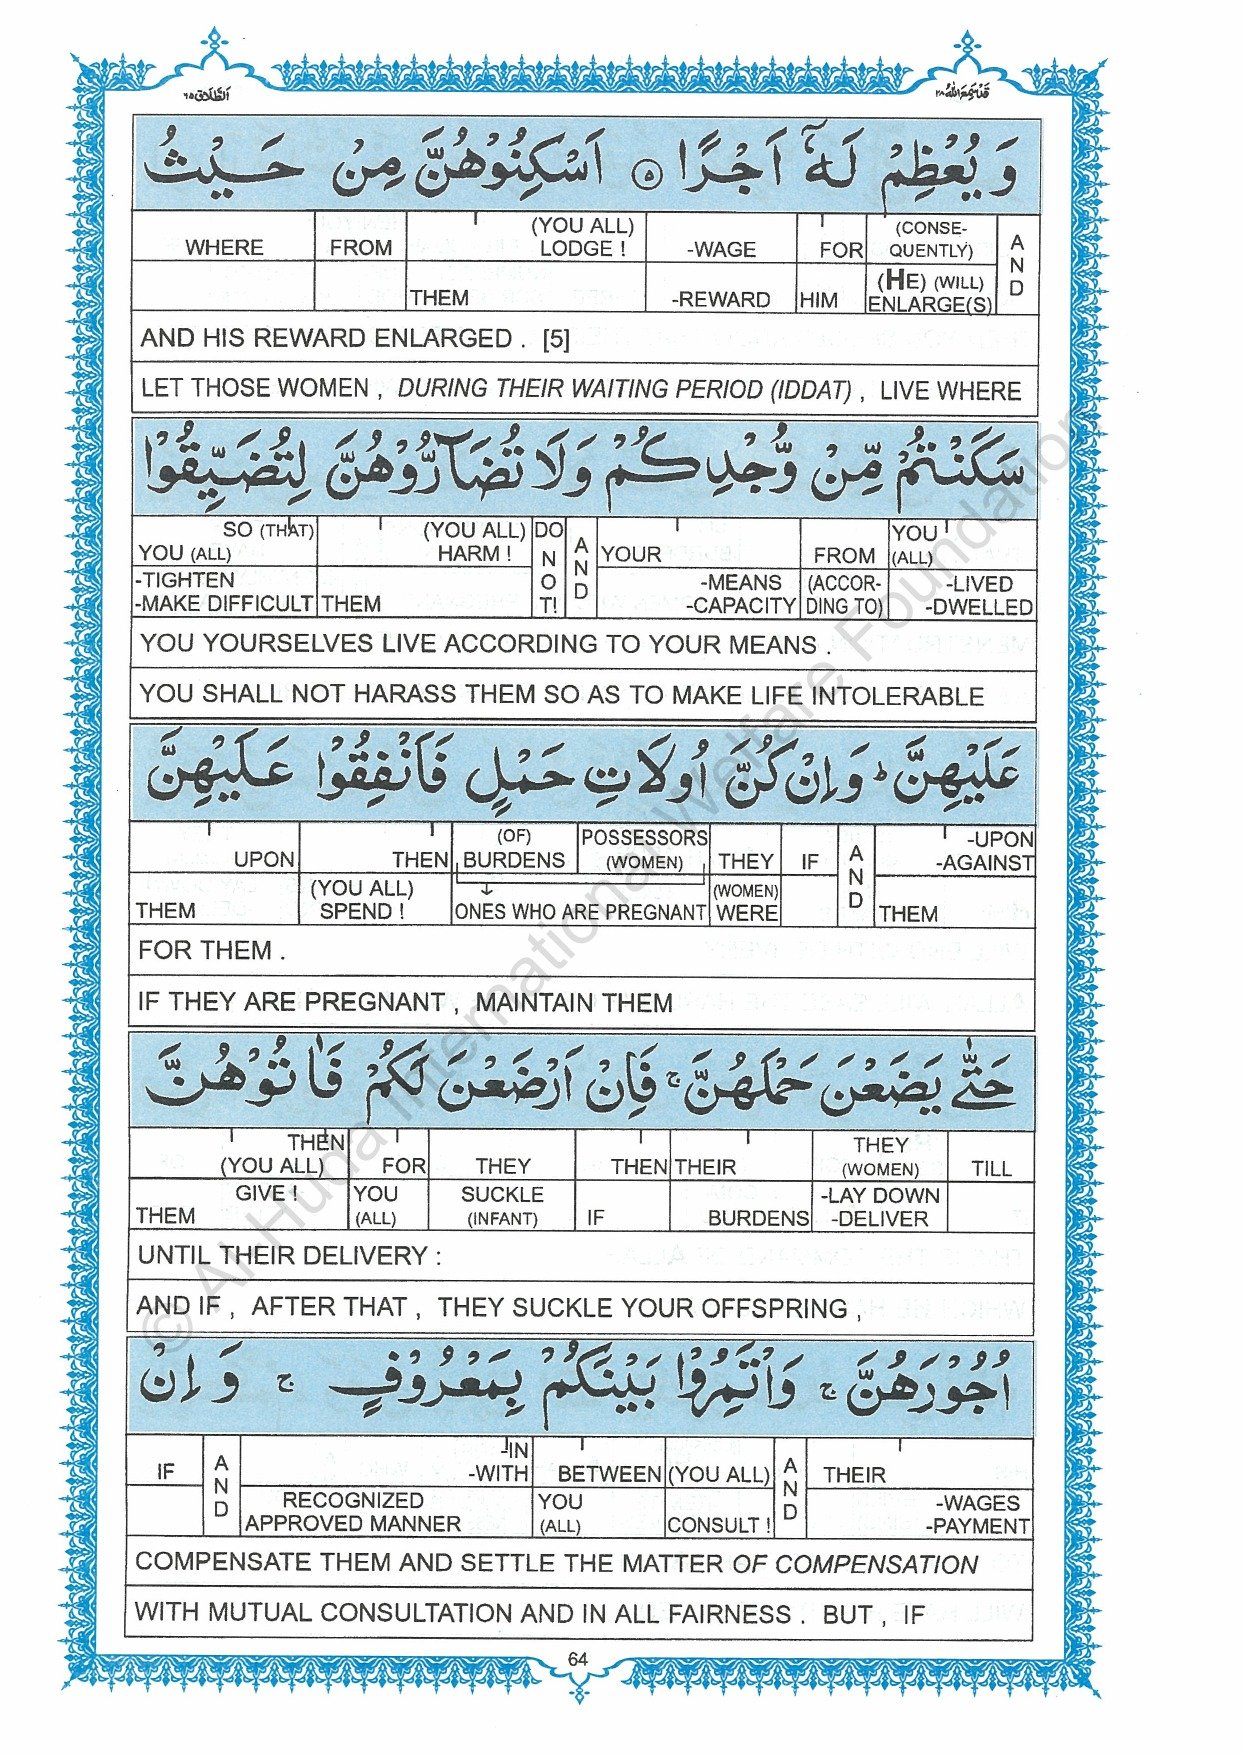 اَلطَّلَاق ٦٥
قَدْ سَمِعَ اللّٰهُ ٢٨
وَ يُعْظِمْ لَهٗۤ اَجْرًا ۝٥ اَسْكِنُوْهُنَّ مِنْ حَيْثُ
WHERE FROM (YOU ALL) LODGE ! -WAGE FOR (CONSE-QUENTLY) AND
THEM -REWARD HIM (HE) (WILL) ENLARGE(S)
AND HIS REWARD ENLARGED . [5]
LET THOSE WOMEN , DURING THEIR WAITING PERIOD (IDDAT) , LIVE WHERE
سَكَنْتُمْ مِّنْ وُّجْدِكُمْ وَلَا تُضَآرُّوْهُنَّ لِتُضَيِّقُوْا
SO (THAT) YOU (ALL) (YOU ALL) HARM ! DO NOT! AND YOUR FROM YOU (ALL)
-TIGHTEN -MAKE DIFFICULT THEM -MEANS -CAPACITY (ACCOR-DING TO) -LIVED -DWELLED
YOU YOURSELVES LIVE ACCORDING TO YOUR MEANS .
YOU SHALL NOT HARASS THEM SO AS TO MAKE LIFE INTOLERABLE
عَلَيْهِنَّ ؕ وَاِنْ كُنَّ اُولَاتِ حَمْلٍ فَاَنْفِقُوْا عَلَيْهِنَّ
UPON THEN (OF) BURDENS POSSESSORS (WOMEN) THEY IF AND -UPON -AGAINST
THEM (YOU ALL) SPEND ! ONES WHO ARE PREGNANT (WOMEN) WERE THEM
FOR THEM .
IF THEY ARE PREGNANT , MAINTAIN THEM
حَتّٰى يَضَعْنَ حَمْلَهُنَّ ۚ فَاِنْ اَرْضَعْنَ لَكُمْ فَاٰتُوْهُنَّ
THEN (YOU ALL) FOR THEY THEN THEIR THEY (WOMEN) TILL
THEM GIVE ! YOU (ALL) SUCKLE (INFANT) IF BURDENS -LAY DOWN -DELIVER
UNTIL THEIR DELIVERY :
AND IF , AFTER THAT , THEY SUCKLE YOUR OFFSPRING ,
اُجُوْرَهُنَّ ۚ وَاْتَمِرُوْا بَيْنَكُمْ بِمَعْرُوْفٍ ۚ وَ اِنْ
IF AND -IN -WITH BETWEEN (YOU ALL) AND THEIR
RECOGNIZED APPROVED MANNER YOU (ALL) CONSULT ! -WAGES -PAYMENT
COMPENSATE THEM AND SETTLE THE MATTER OF COMPENSATION
WITH MUTUAL CONSULTATION AND IN ALL FAIRNESS . BUT , IF
64
© Al-Huda International Welfare Foundation